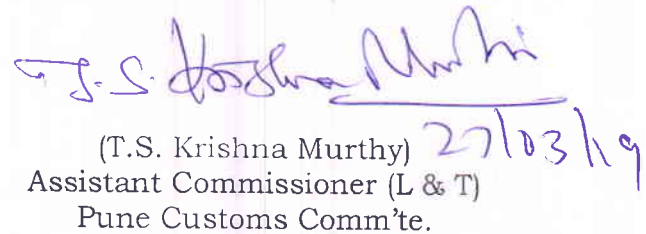 T. S. Krishna Murthi
(T.S. Krishna Murthy) 27/03/19
Assistant Commissioner (L & T)
Pune Customs Comm'te.